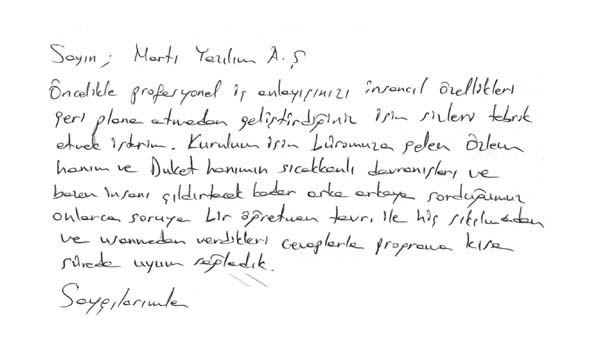 Sayın; Martı Yazılım A.Ş
Öncelikle profesyonel iş anlayışınızı insancıl özellikleri
geri plana atmadan geliştirdiğiniz için sizleri tebrik
etmek isterim. Kurulum için büromuza gelen Özlem
hanım ve Buket hanımın sıcakkanlı davranışları ve
bazen insanı çıldırtacak kadar arka arkaya sorduğumuz
onlarca soruya bir öğretmen tavrı ile hiç sıkılmadan
ve usanmadan verdikleri cevaplarla programa kısa
sürede uyum sağladık.
Saygılarımla